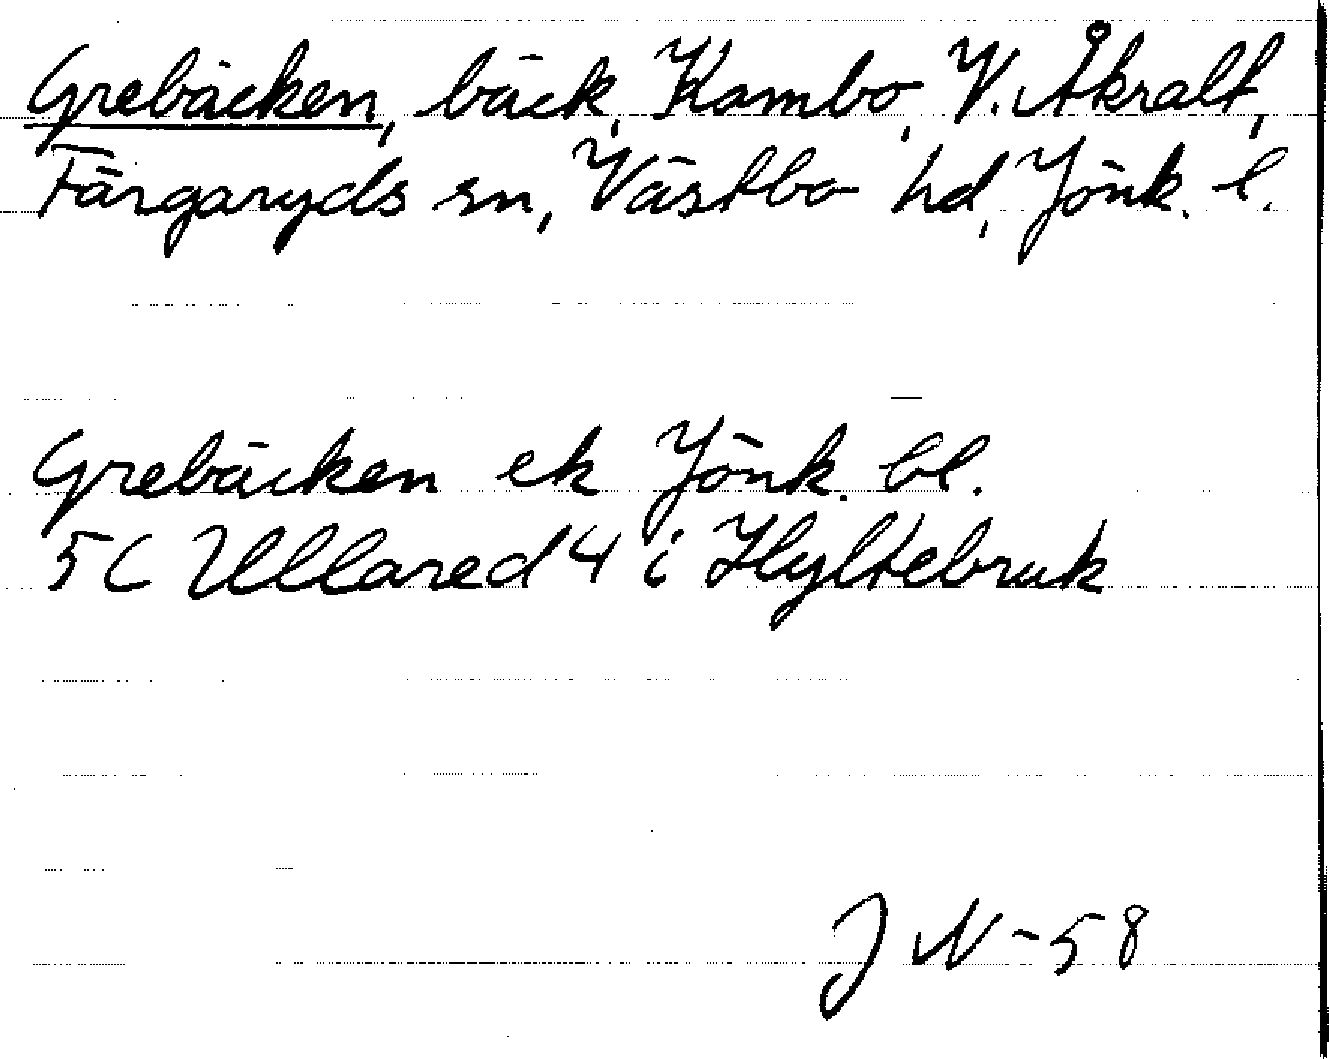 Grebäcken, bäck, Kambo, V. Åkralt,
Färgaryds sn, Västbo hd, Jönk. l.
Grebäcken ek Jönk. bl.
5C Ullared 4 i Hyltebruk
J N-58